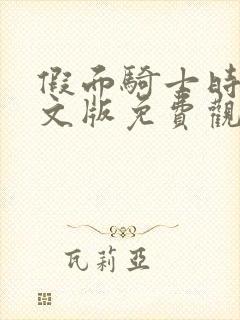 假面騎士時
文版免費觀
瓦莉亞